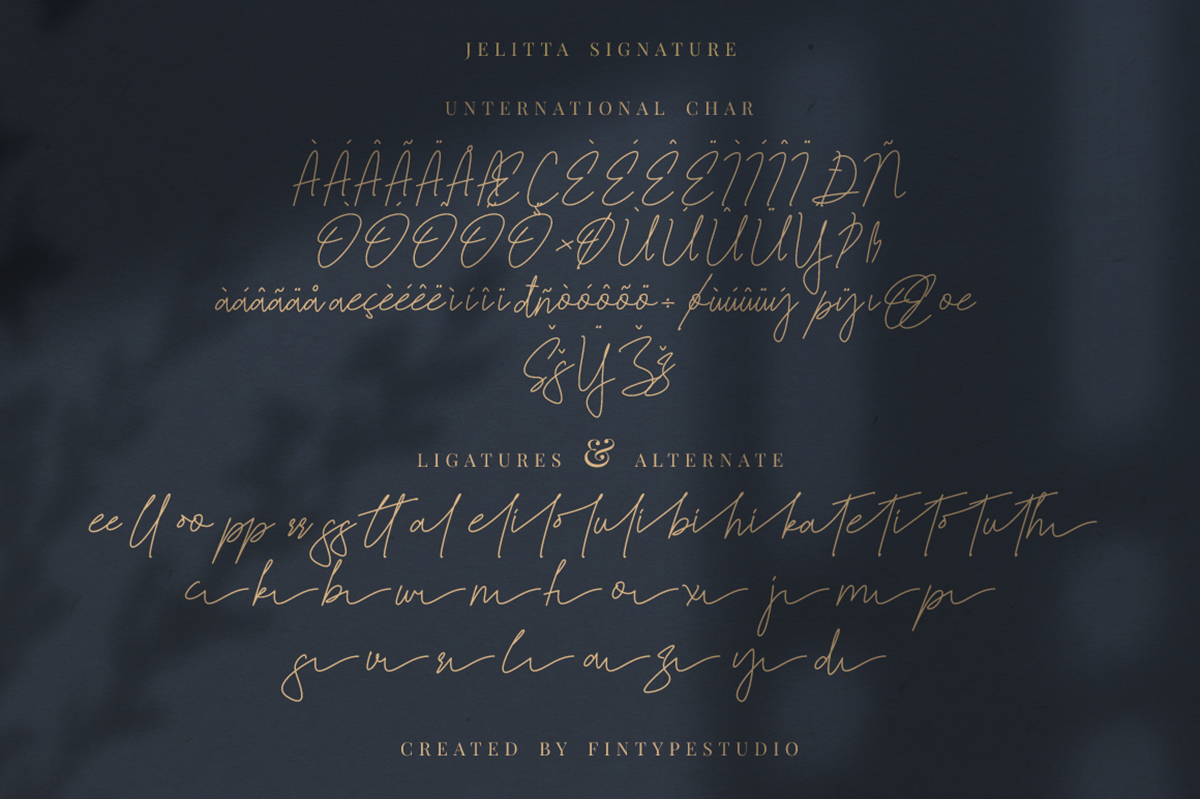 JELITTA SIGNATURE
UNTERNATIONAL CHAR
ÀÁÂÃÄÅÆÇÈÉÊËÌÍÎÏÐÑ
ÒÓÔÕÖ×ØÙÚÛÜÝÞß
àáâãäåæçèéêëìíîïđñòóôõö÷øùúûüýþÿıŒœ
ŠšŸŽž
LIGATURES & ALTERNATE
ee ll oo pp rr ss tt al el il ol ul ib ih ik at et it ot ut th
c k b w n t o x j m p
s v r l a z y d
CREATED BY FINTYPESTUDIO